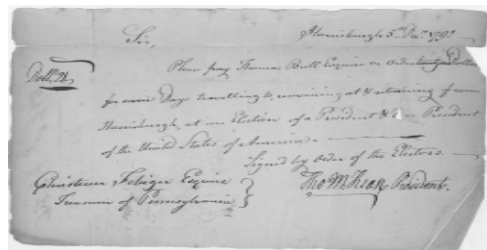 Sir, Harrisburgh 5th Decr. 1792
Dolls. 24 Please pay Thomas Bull Esquire or Order Dollars
for Days travelling to, remaining at & returning from
Harrisburgh, at an Election of a President & Vice President
of the United States of America.
Signed by Order of the Electors
Christian Febiger Esquire Tho M:Kean President.
Treasurer of Pennsylvania